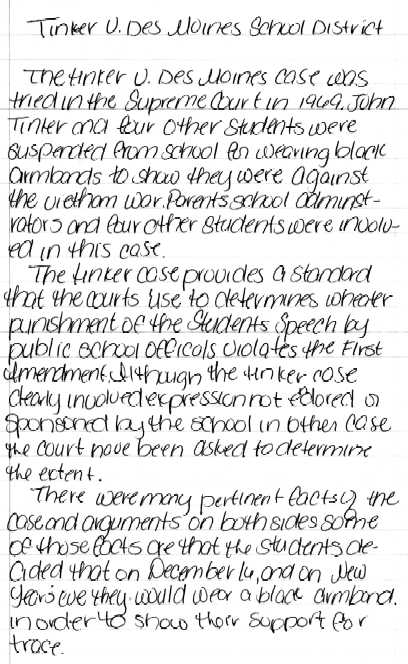 Tinker V. Des Moines School District
The tinker V. Des Moines case was
tried in the Supreme Court in 1969. John
Tinker and four other students were
suspended from school for wearing black
armbands to show they were against
the vietnam war. Parents, school administ-
rators and four other students were involv-
ed in this case.
The tinker case provides a standard
that the courts use to determines wheater
punishment of the students speech by
public school officals violates the First
Amendment. Although the tinker case
clearly involved expression not
sponsored by the school in other case
the court have been asked to determine
the extent.
There were many pertinent facts of the
case and arguments on both sides some
of those facts are that the students de-
cided that on December 16, and on New
Years eve they would wear a black armband.
in order to show their support for
trace.